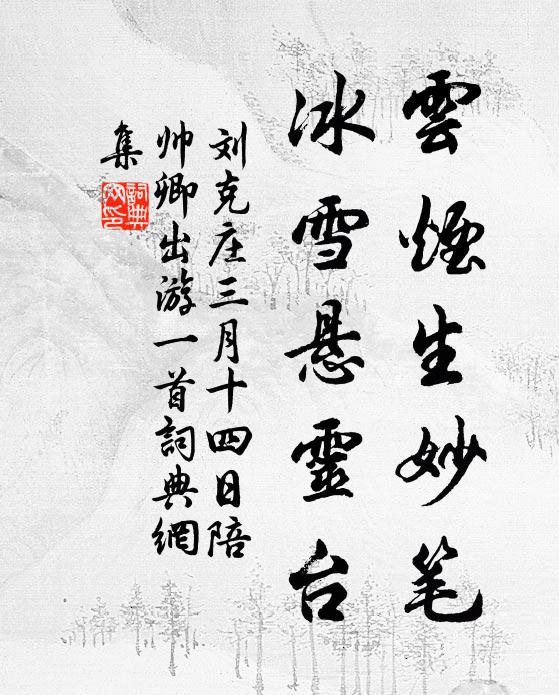 雲煙生妙笔
冰雪悬靈台
刘克庄三月十四日陪
帅卿出游一首詞典網
集
詞典網印